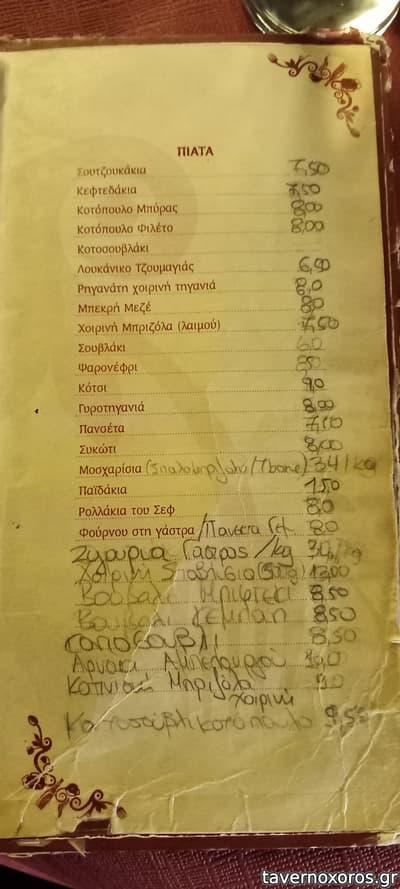 ΠΙΑΤΑ
Σουτζουκάκια 7,50
Κεφτεδάκια 7,50
Κοτόπουλο Μπύρας 8,00
Κοτόπουλο Φιλέτο 8,00
Κοτοσουβλάκι
Λουκάνικο Τζουμαγιάς 6,50
Ρηγανάτη χοιρινή τηγανιά 8,0
Μπεκρή Μεζέ 8,0
Χοιρινή Μπριζόλα (λαιμού) 7,50
Σουβλάκι 6,0
Ψαρονέφρι
Κότσι 9,0
Γυροτηγανιά 8,00
Πανσέτα
Συκώτι 8,00
Μοσχαρίσια (Σπαλομπριζολα/Tbone) 34/kg
Παϊδάκια
Ρολλάκια του Σεφ 8,0
Φούρνου στη γάστρα / Πανσετα 8,0
/kg
Χοιρινή (500g) 12,00
Βουβαλι Μπιφτεκι 8,50
Βουβαλι Κεμπαπ 8,50
8,50
Αρνακι Αμπελουργού
Καπνιστή Μπριζόλα 9,0
χοιρινή
κοτοπουλο 9,50
tavernoxoros.gr